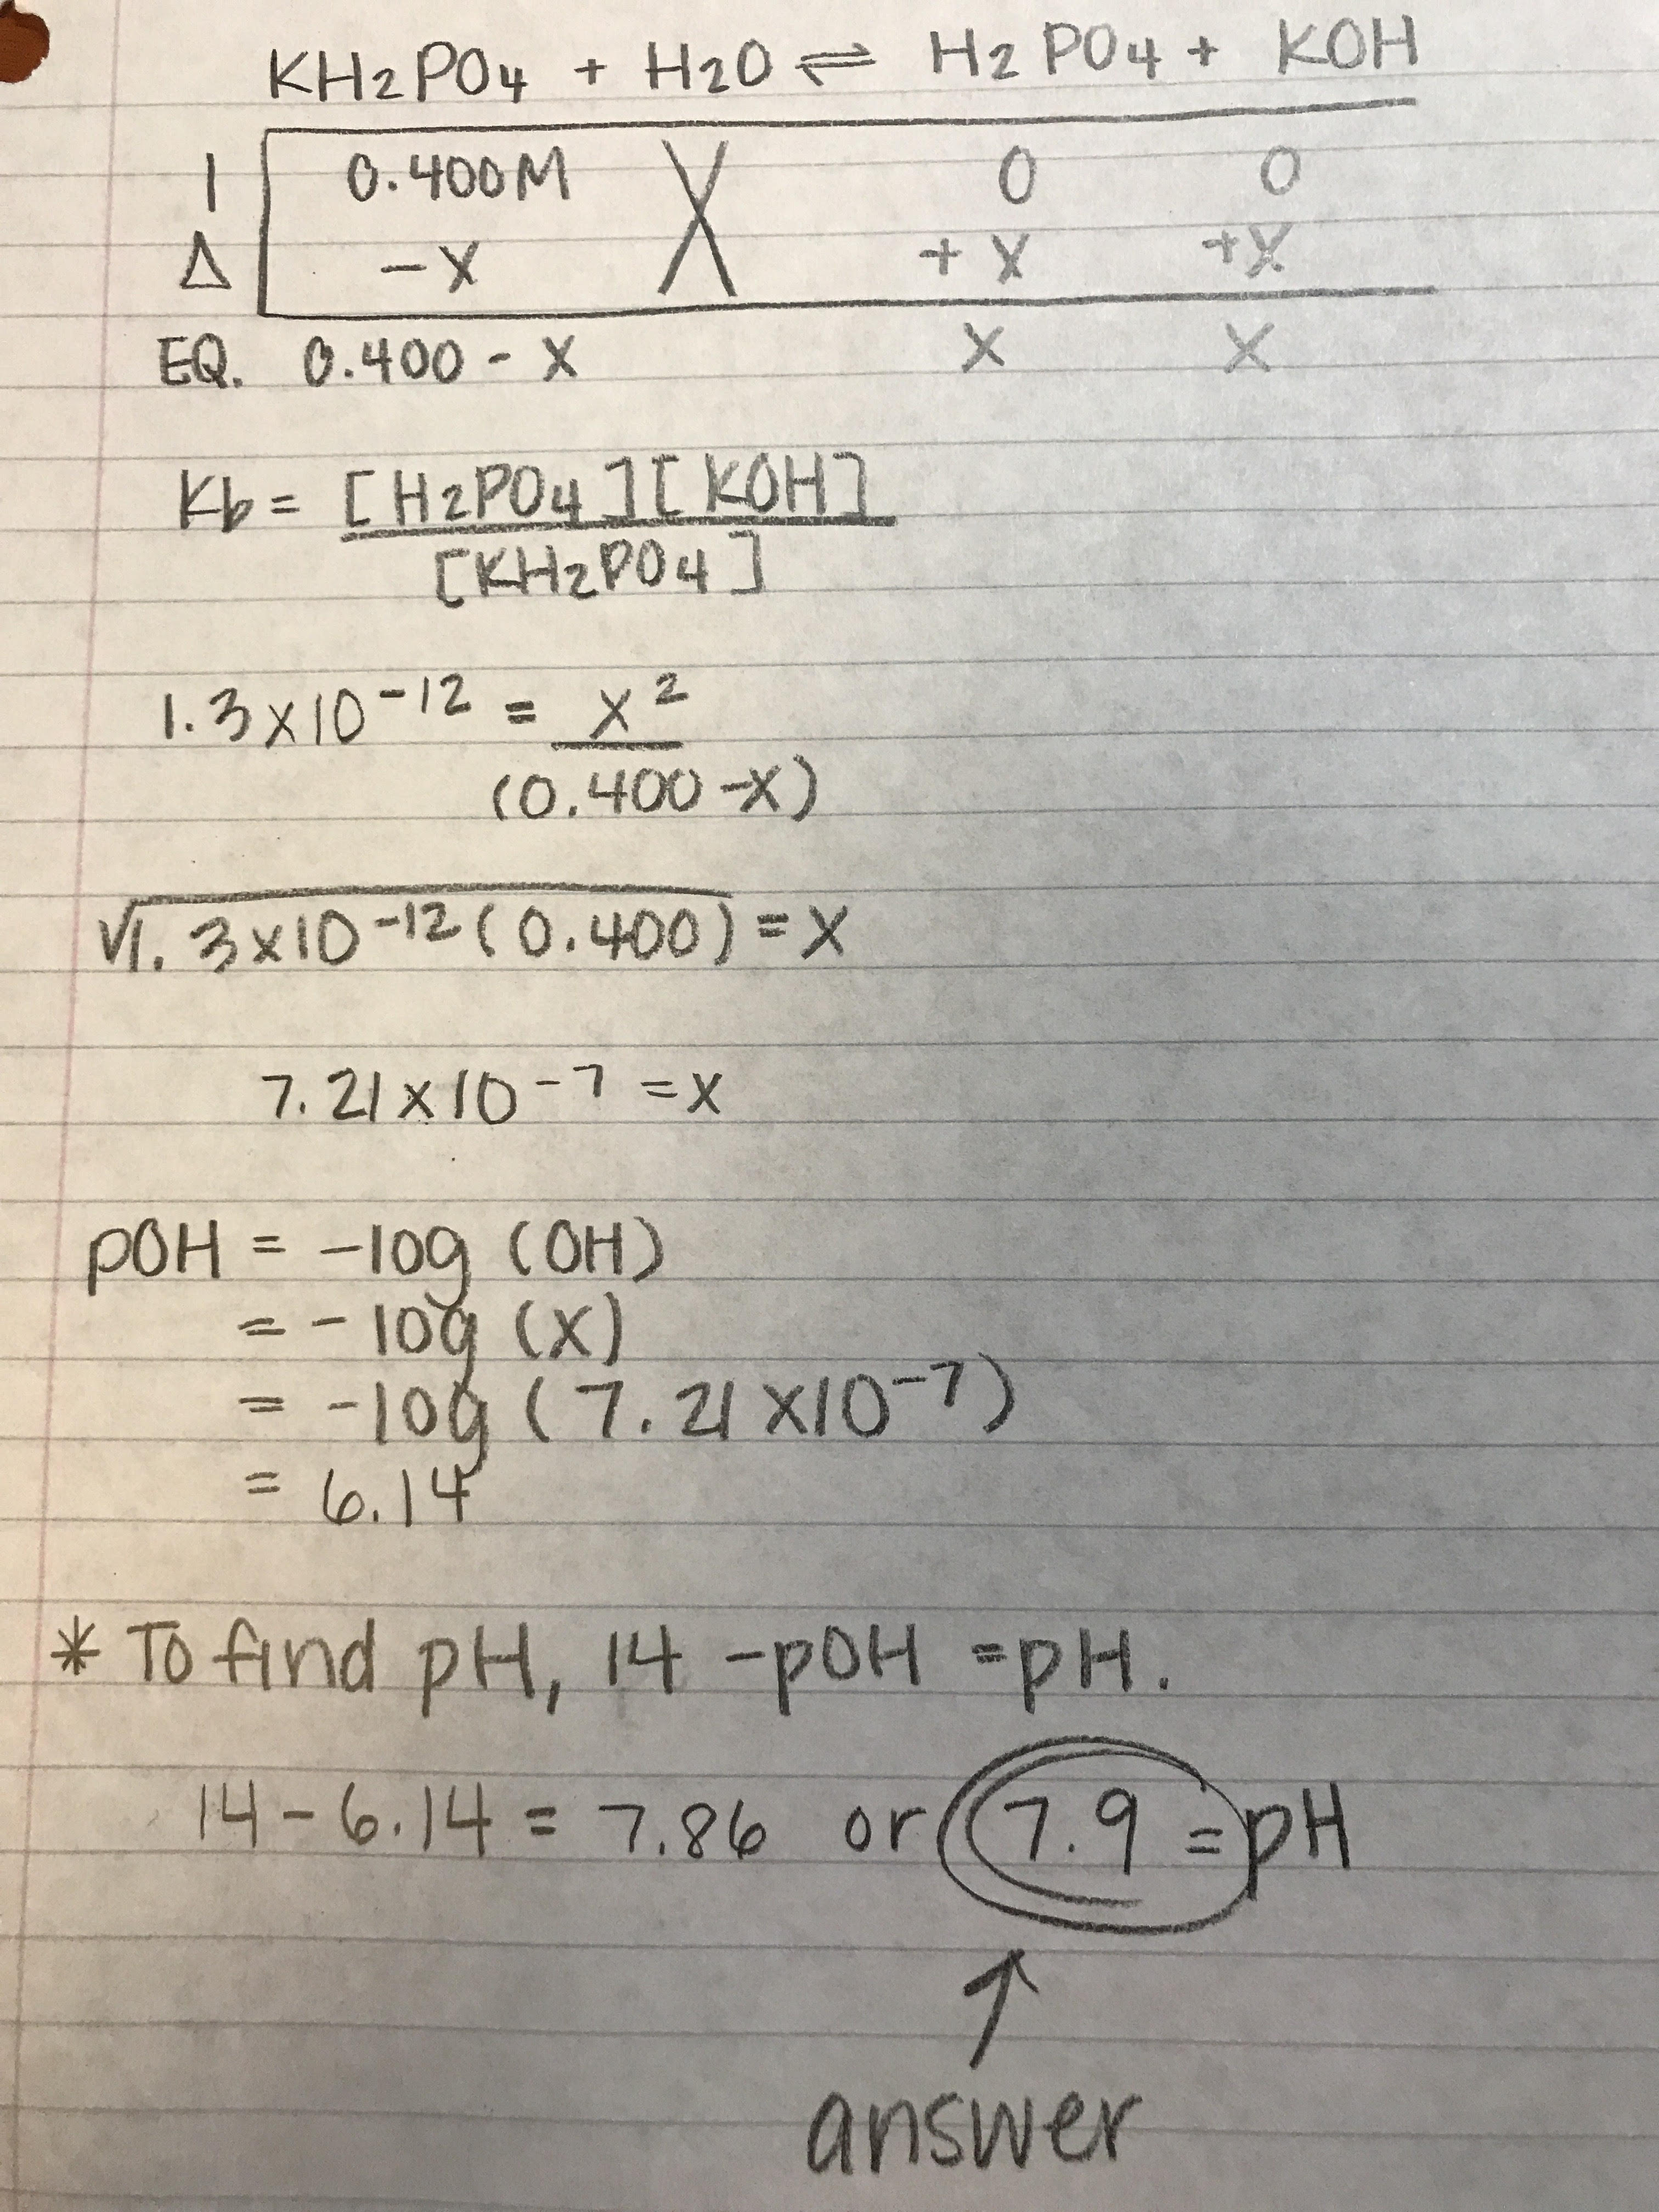 KH2PO4 + H2O ⇌ H2PO4 + KOH
I 0.400M X 0 0
Δ -X +X +X
EQ. 0.400 - X X X
Kb = [H2PO4][KOH]
[KH2PO4]
1.3x10^-12 = x^2
(0.400-X)
√1.3x10^-12(0.400) = X
7.21x10^-7 = X
pOH = -log (OH)
= -log (X)
= -log (7.21x10^-7)
= 6.14
* To find pH, 14 - pOH = pH.
14 - 6.14 = 7.86 or 7.9 = pH
↑
answer